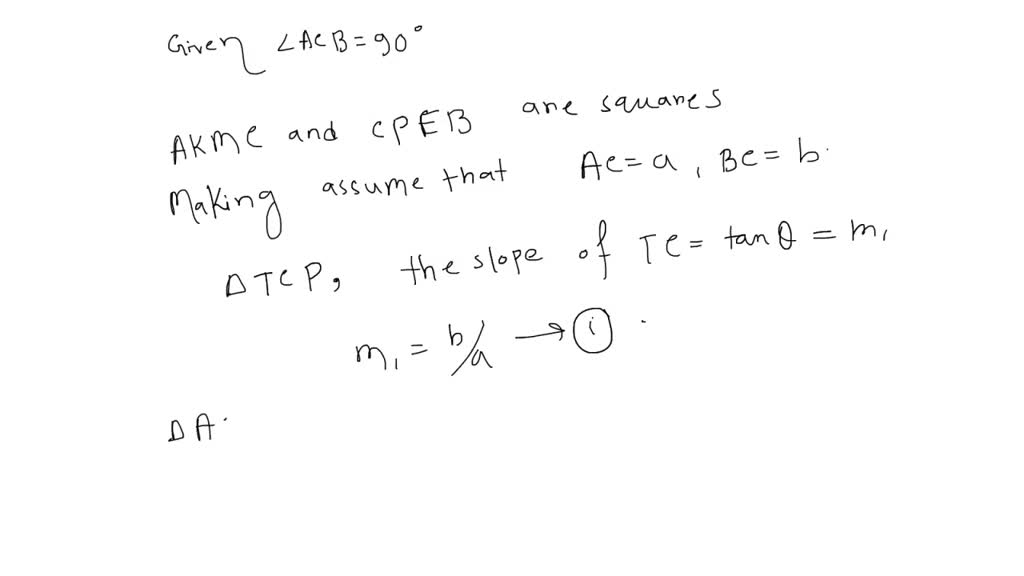 Given ∠ACB = 90°
AKMC and CPEB are squares
Making assume that AC = a, BC = b.
ΔTCP, the slope of TC = tanθ = m₁
m₁ = b/a → (i) .
ΔA.